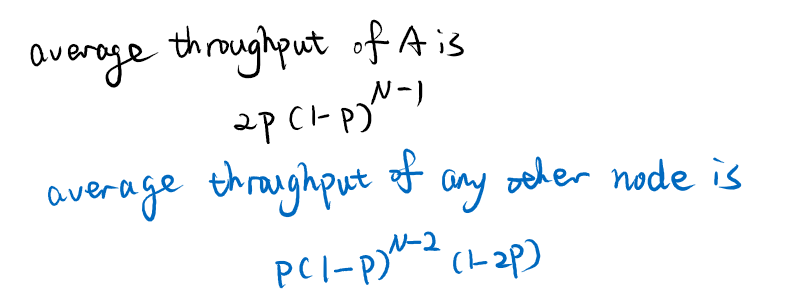 average throughput of A is
2p(1-p)^{N-1}
average throughput of any other node is
p(1-p)^{N-2} (1-2p)